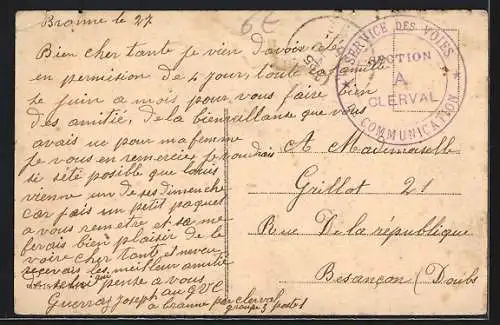 Branne le 27
6E
Bien cher tante je vien d'avoir de
en permission de 4 jour, toute la famille
se juin a mois pour vous faire bien
des amitié, de la bienveillante que vous
avais uc pour ma femme
je vous en remercie, je voudrais
si sété posible que Louis
vienne un de ses dimenche
car fais un petit paquet
a vous remetre et sa me
ferais bien plaisir de la
voire cher tante et
recevais les meilleur amitié
pense a vous
Guerraz Joseph au G.V.C
a branne par clerval
groupe 3 poste 1
SERVICE DES VOIES
SECTION
A
CLERVAL
COMMUNICATION
A Mademoiselle
Grillot 21
Rue De la république
Besançon (Doubs